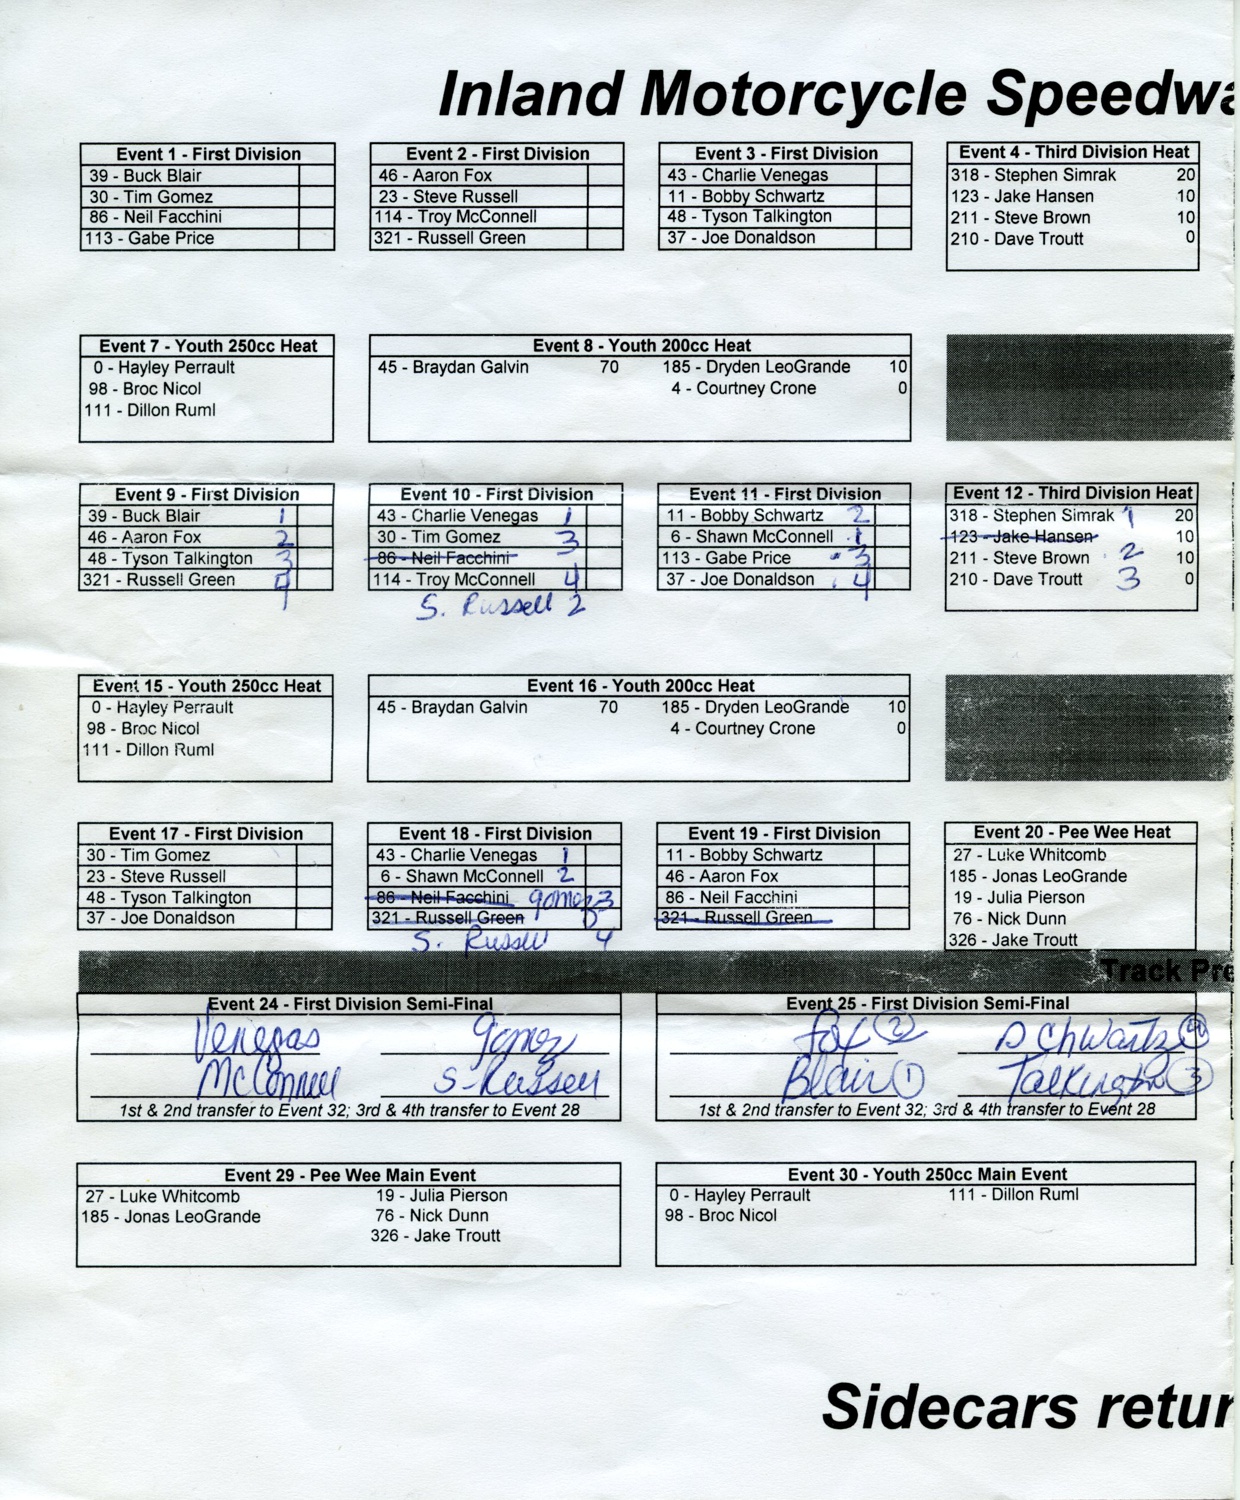 Inland Motorcycle Speedwa
Event 1 - First Division
39 - Buck Blair
30 - Tim Gomez
86 - Neil Facchini
113 - Gabe Price
Event 2 - First Division
46 - Aaron Fox
23 - Steve Russell
114 - Troy McConnell
321 - Russell Green
Event 3 - First Division
43 - Charlie Venegas
11 - Bobby Schwartz
48 - Tyson Talkington
37 - Joe Donaldson
Event 4 - Third Division Heat
318 - Stephen Simrak 20
123 - Jake Hansen 10
211 - Steve Brown 10
210 - Dave Troutt 0
Event 7 - Youth 250cc Heat
0 - Hayley Perrault
98 - Broc Nicol
111 - Dillon Ruml
Event 8 - Youth 200cc Heat
45 - Braydan Galvin 70 185 - Dryden LeoGrande 10
4 - Courtney Crone 0
Event 9 - First Division
39 - Buck Blair 1
46 - Aaron Fox 2
48 - Tyson Talkington 3
321 - Russell Green 4
Event 10 - First Division
43 - Charlie Venegas 1
30 - Tim Gomez 3
86 - Neil Facchini
114 - Troy McConnell 4
S. Russell 2
Event 11 - First Division
11 - Bobby Schwartz 2
6 - Shawn McConnell 1
113 - Gabe Price 3
37 - Joe Donaldson 4
Event 12 - Third Division Heat
318 - Stephen Simrak 1 20
123 - Jake Hansen 10
211 - Steve Brown 2 10
210 - Dave Troutt 3 0
Event 15 - Youth 250cc Heat
0 - Hayley Perrault
98 - Broc Nicol
111 - Dillon Ruml
Event 16 - Youth 200cc Heat
45 - Braydan Galvin 70 185 - Dryden LeoGrande 10
4 - Courtney Crone 0
Event 17 - First Division
30 - Tim Gomez
23 - Steve Russell
48 - Tyson Talkington
37 - Joe Donaldson
Event 18 - First Division
43 - Charlie Venegas 1
6 - Shawn McConnell 2
86 - Neil Facchini gomez 3
321 - Russell Green
S. Russell 4
Event 19 - First Division
11 - Bobby Schwartz
46 - Aaron Fox
86 - Neil Facchini
321 - Russell Green
Event 20 - Pee Wee Heat
27 - Luke Whitcomb
185 - Jonas LeoGrande
19 - Julia Pierson
76 - Nick Dunn
326 - Jake Troutt
Track Pre
Event 24 - First Division Semi-Final
Venegas gomez
McConnell S-Russell
1st & 2nd transfer to Event 32; 3rd & 4th transfer to Event 28
Event 25 - First Division Semi-Final
Fox 2 Schwartz 4
Blair 1 Talkington 3
1st & 2nd transfer to Event 32; 3rd & 4th transfer to Event 28
Event 29 - Pee Wee Main Event
27 - Luke Whitcomb 19 - Julia Pierson
185 - Jonas LeoGrande 76 - Nick Dunn
326 - Jake Troutt
Event 30 - Youth 250cc Main Event
0 - Hayley Perrault 111 - Dillon Ruml
98 - Broc Nicol
Sidecars retur